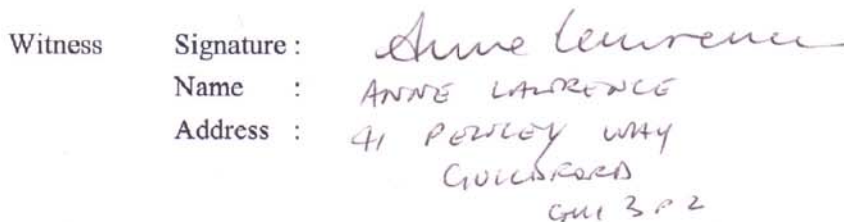 Witness Signature : Anne Lawrence
Name : ANNE LAWRENCE
Address : 41 PEWLEY WAY
GUILDFORD
GU1 3PZ